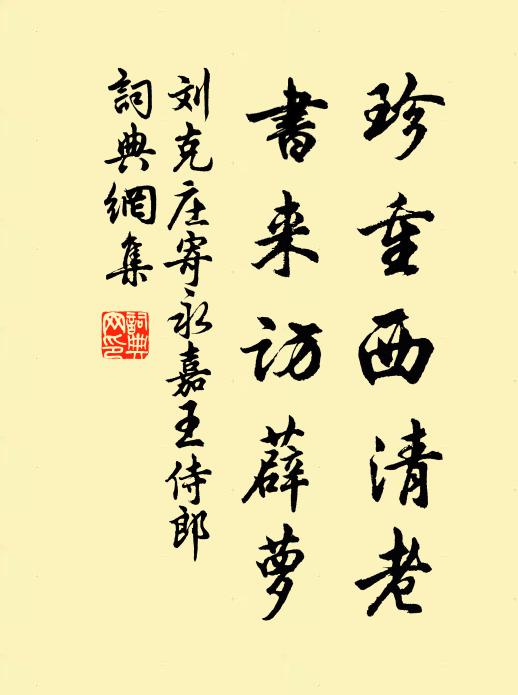 珍重西清老
书来访薜萝
刘克庄寄永嘉王侍郎
词典网集
詞典网印